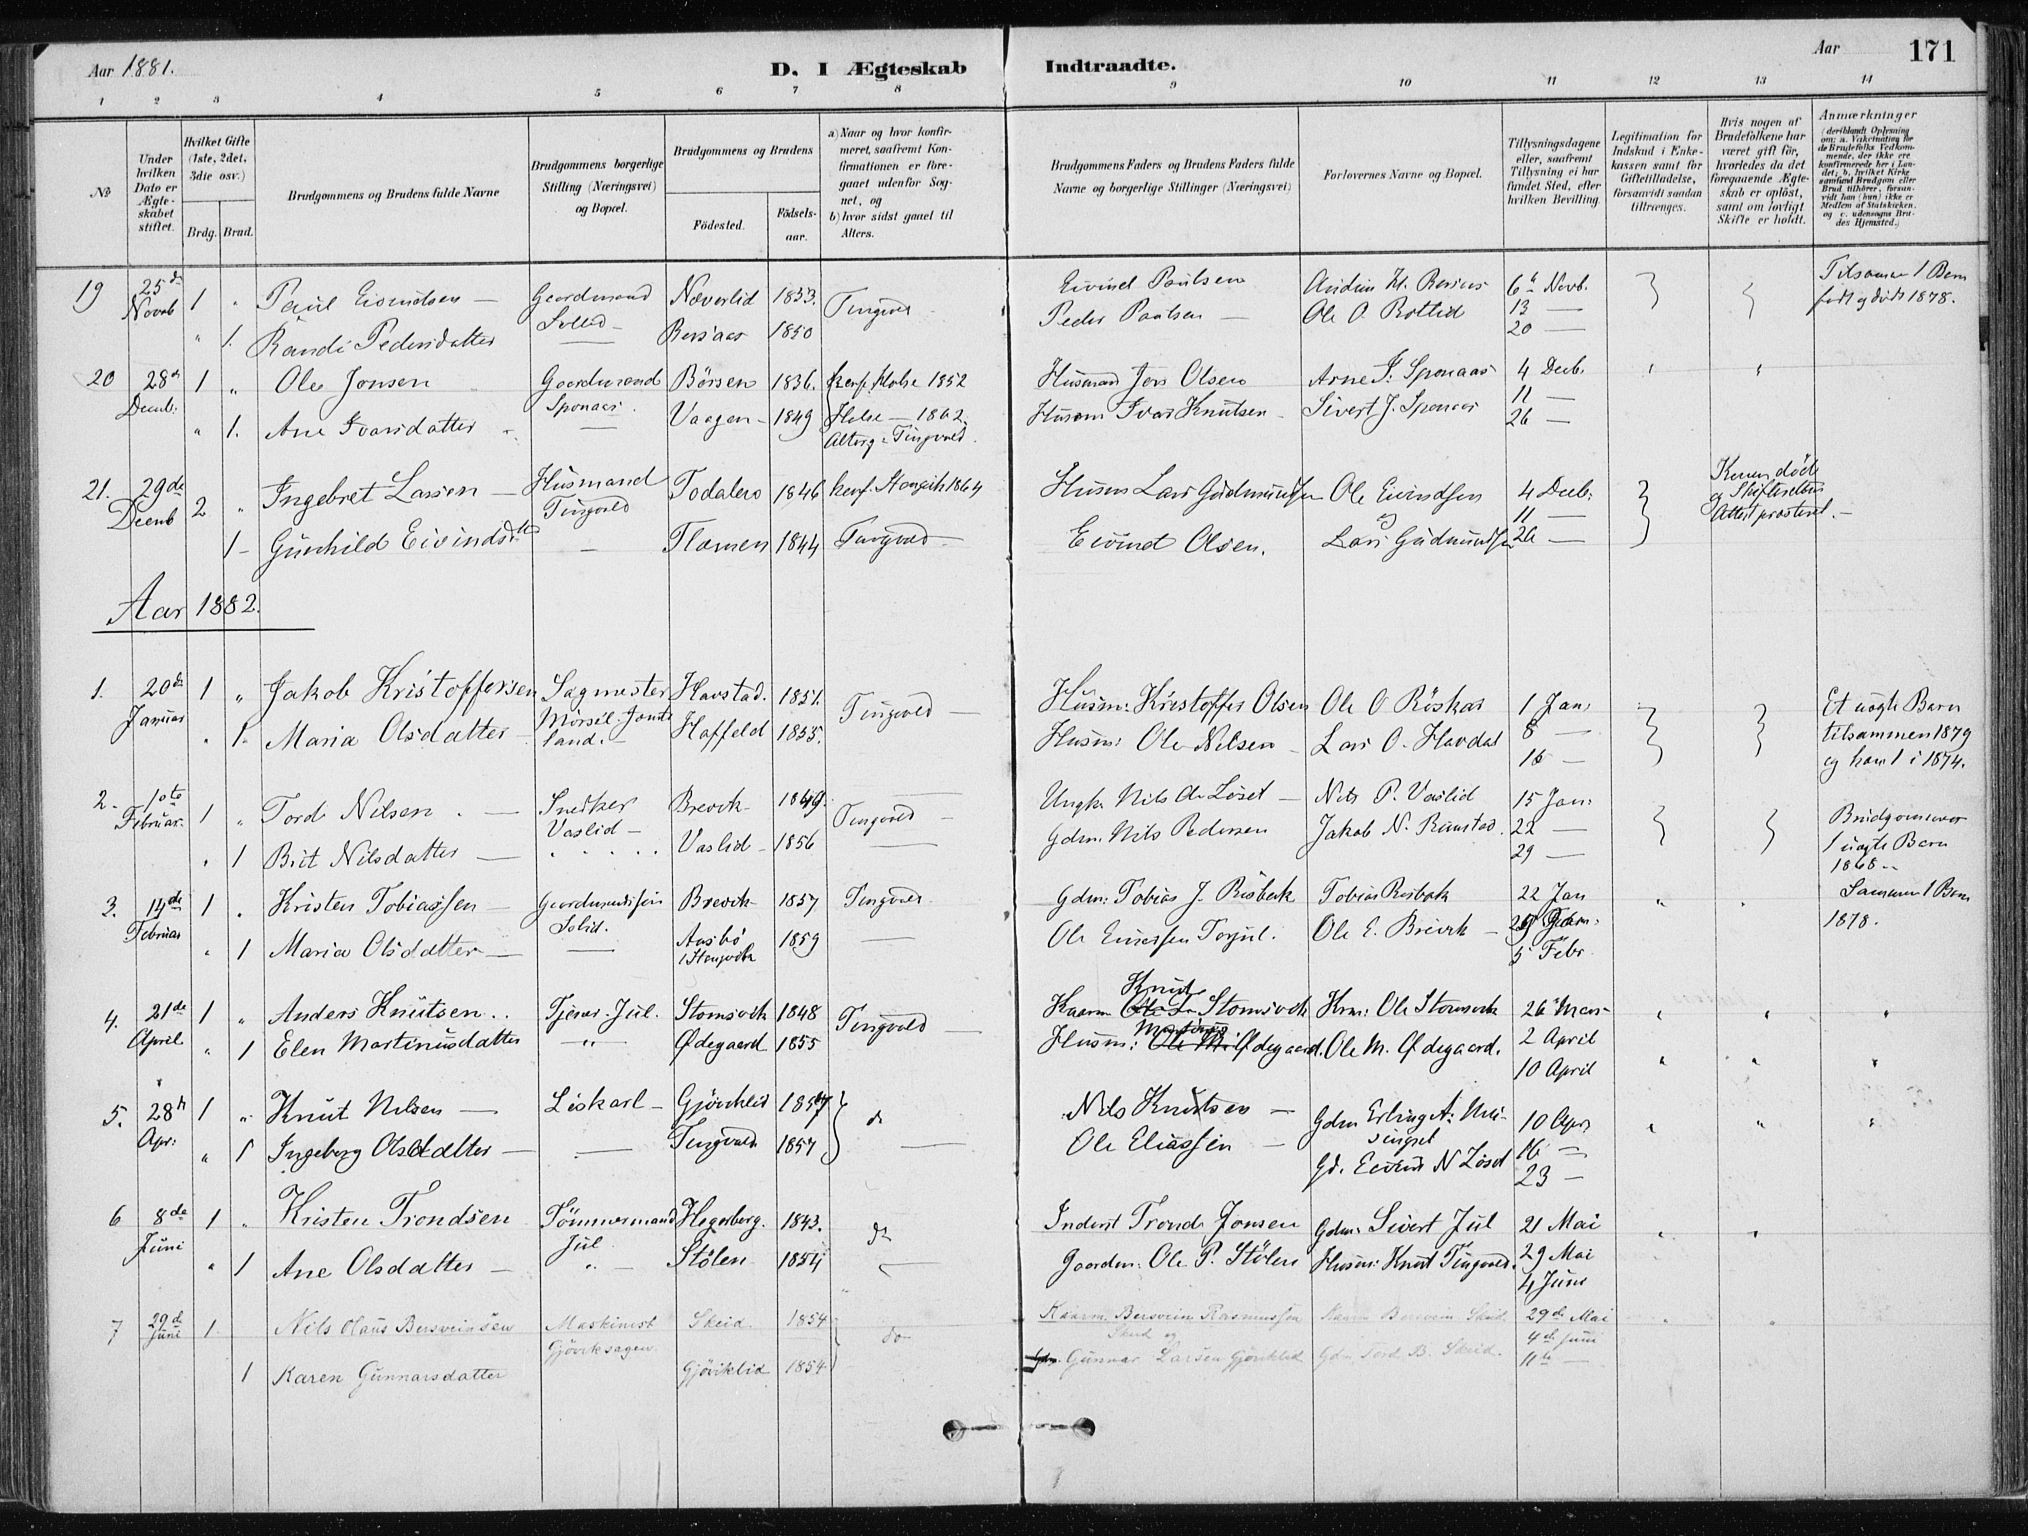 Aar 1881.
D. I Ægteskab Indtraadte.
Aar 171
1 2 3 4 5 6 7 8 9 10 11 12 13 14
No
Under hvilken Dato er Ægteskabet stiftet.
Hvilket Gifte (1ste, 2det, 3die osv.)
Brdg. Brud.
Brudgommens og Brudens fulde Navne
Brudgommens borgerlige Stilling (Næringsvei) og Bopæl.
Brudgommens og Brudens
Födested.
Födselsaar.
a) Naar og hvor konfirmeret, saafremt Konfirmationen er foregaaet udenfor Sognet, og
b) hvor sidst gaaet til Alters.
Brudgommens Faders og Brudens Faders fulde Navne og borgerlige Stillinger (Næringsvei)
Forlovernes Navne og Bopæl.
Tillysningsdagene eller, saafremt Tillysning ei har fundet Sted, efter hvilken Bevilling.
Legitimation for Indskud i Enkekassen samt for Giftetilladelse, forsaavidt saadan tiltrænges.
Hvis nogen af Brudefolkene har været gift för, hvorledes da det foregaaende Ægteskab er oplöst, samt om lovligt Skifte er holdt.
Anmærkninger
(deriblandt Oplysning om: a. Vakcination for de Brudefolks Vedkommende, der ikke ere konfirmerede her i Landet; b. hvilket Kirkesamfund Brudgom eller Brud tilhörer, forsavidt han (hun) ikke er Medlem af Statskirken, og c. udensogns Brudes Hjemsted.)
19 25de Novb 1 " Paul Eivindsen Gaardmand Næverlid 1853. Tingvol Eivind Paulsen 6te Novb. Tilsamm 1 Barn
" 1. Randi Pedersdatter Bersaas 1850 Peder Paulsen Ole O. Rottid 13 — født og död 1878.
20 —
20 28de Decemb: 1 " Ole Jonsen Gaardmand Börsen 1836. Konf. Halse 1852 Husmand Jon Olsen Arne I. Sponaas 4 Decb.
" 1. Ane Ivarsdatter Sponaas. Vaagen 1849 Halse — 1862 Husm Ivar Knutsen Sivert J. Sponaas 11 —
Alterg. Tingvold. 26 —
21. 29de Decmb 2 " Ingebret Larsen Husmand Tingvold Todalen 1846 konf. Stangvik 1864 Husm Lars Gudmundsen Ole Eivindsen 4 Decb: Konen död og Skifteretens Attest præsteret.
1 Gunhild Eivindsdtr — Flemen 1844 Tingvold Eivind Olsen. og Lars Gudmundsen 11 —
26 —
Aar 1882.
1. 20de Januar 1 " Jakob Kristoffersen Sagmester Havstad. 1851. Tingvold Husm: Kristoffer Olsen Ole O Röskar 1 Jan. Et uægte Barn
" 1. Maria Olsdatter land. Haffeld 1855. Husm: Ole Nilsen Lars O. Havdal 8 — tilsammen 1879
16 — og ham 1 i 1874.
2. 10de Februar. 1 " Tord Nilsen Snedker Brevik 1849. Tingvold Ungk. Nils Löset Nils P. Vaslid 15 Jan: Brudgommen
" 1 Brit Nilsdatter Vaslid Vaslid 1856 Gdm. Nils Pedersen Jakob N. Rimstad. 22 — 1 uægte Barn
29 — 1868
3. 14de Februar 1 " Kristen Tobiassen Gaardmandssön Brevik 1857 Tingvold Gdm: Tobias J. Risbak Tobias Risbak 22 Jan Sammen 1 Barn
" 1 Maria Olsdatter Solid. Aasbö i Stangvik 1859 — Ole Einersen Torjul. Ole E. Brevik 29 Jan: 1878.
5 Febr.
4. 21de April 1 " Anders Knutsen Tjener. Jul. Stomsvik 1848 Tingvold Kaarm Knut Stomsvik Krm: Ole Stomsvik 26 Mars
" 1 Elen Martinusdatter — " — Ødegaard 1855 Husm: Martinus Ødegaard. Ole M. Ødegaard. 2 April
10 April
5. 28de Apr: 1 " Knut Nilsen Löskarl Gjöviklid 1857 do Nils Knutsen Gdm Erling A. 10 Apr.
" 1 Ingeborg Olsdatter — Tingvold 1857 Ole Eliassen Gd. Eivind N Löset 16 —
23 —
6 8de Juni 1 " Kristen Trondsen Tömmermand Hegerberg. 1843. do Inderst Trond Jonsen Gdm: Sivert Jul 21 Mai
" 1 Ane Olsdatter Jul Stölen 1854 Gaardm: Ole P. Stölen Husm: Knut Tingvold. 29 Mai
4 Juni
7 29de Juni 1. Nils Olaus Bersveinsen Maskinist Skeid. 1854 do Kaarm. Bersvein Rasmussen Skeid og Kaarm Bersvein Skeid. 29de Mai
1 Karen Gunnarsdatter Gjöviksagen. Gjöviklid 1854. Gdm. Gunnar Larsen Gjöviklid Gdm. Tord B. Skeid. 4de Juni
11te —